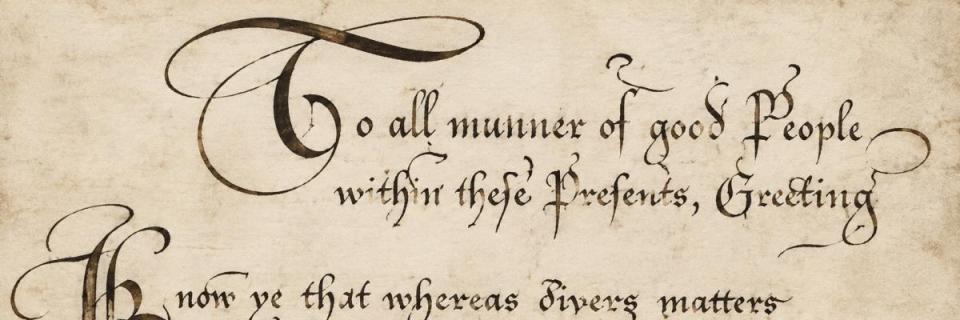 To all munner of good People
within these Presents, Greeting
Know ye that whereas divers matters